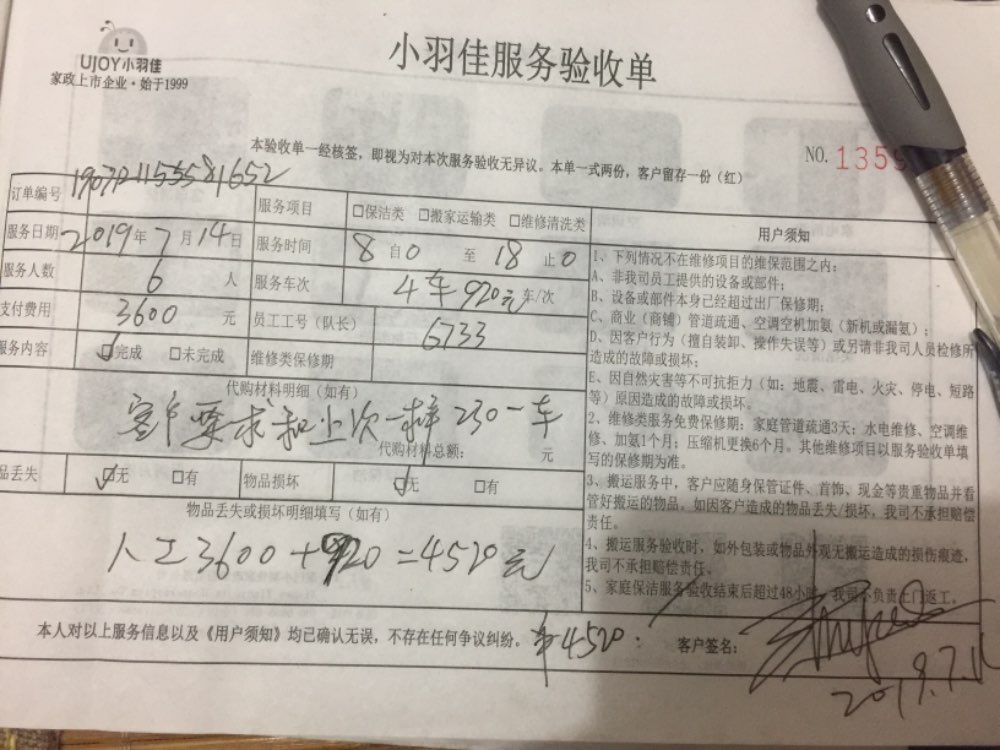 UJOY小羽佳
家政上市企业·始于1999
小羽佳服务验收单
本验收单一经核签，即视为对本次服务验收无异议。本单一式两份，客户留存一份（红）
NO. 1359
订单编号
服务项目 □保洁类 □搬家运输类 □维修清洗类
服务日期 2019年7月14日 服务时间 8自0至18止0
服务人数 6人 服务车次 4车920元车/次
支付费用 3600元 员工工号（队长） 6733
服务内容 ☑完成 □未完成 维修类保修期
代购材料明细（如有）
客户要求和上次一样230一车
代购材料总额： 元
品丢失 ☑无 □有 物品损坏 ☑无 □有
物品丢失或损坏明细填写（如有）
人工3600+920=4520元
用户须知
1、下列情况不在维修项目的维保范围之内：
A、非我司员工提供的设备或部件；
B、设备或部件本身已经超过出厂保修期；
C、商业（商铺）管道疏通、空调空机加氨（新机或漏氨）；
D、因客户行为（擅自装卸、操作失误等）或另请非我司人员检修所
造成的故障或损坏；
E、因自然灾害等不可抗拒力（如：地震、雷电、火灾、停电、短路
等）原因造成的故障或损坏。
2、维修类服务免费保修期：家庭管道疏通3天；水电维修、空调维
修、加氨1个月；压缩机更换6个月。其他维修项目以服务验收单填
写的保修期为准。
3、搬运服务中，客户应随身保管证件、首饰、现金等贵重物品并看
管好搬运的物品。如因客户造成的物品丢失/损坏，我司不承担赔偿
责任。
4、搬运服务验收时，如外包装或物品外观无搬运造成的损伤痕迹，
我司不承担赔偿责任。
5、家庭保洁服务验收结束后超过48小时，我司不负责上门返工。
本人对以上服务信息以及《用户须知》均已确认无误，不存在任何争议纠纷。 ¥4520. 客户签名：